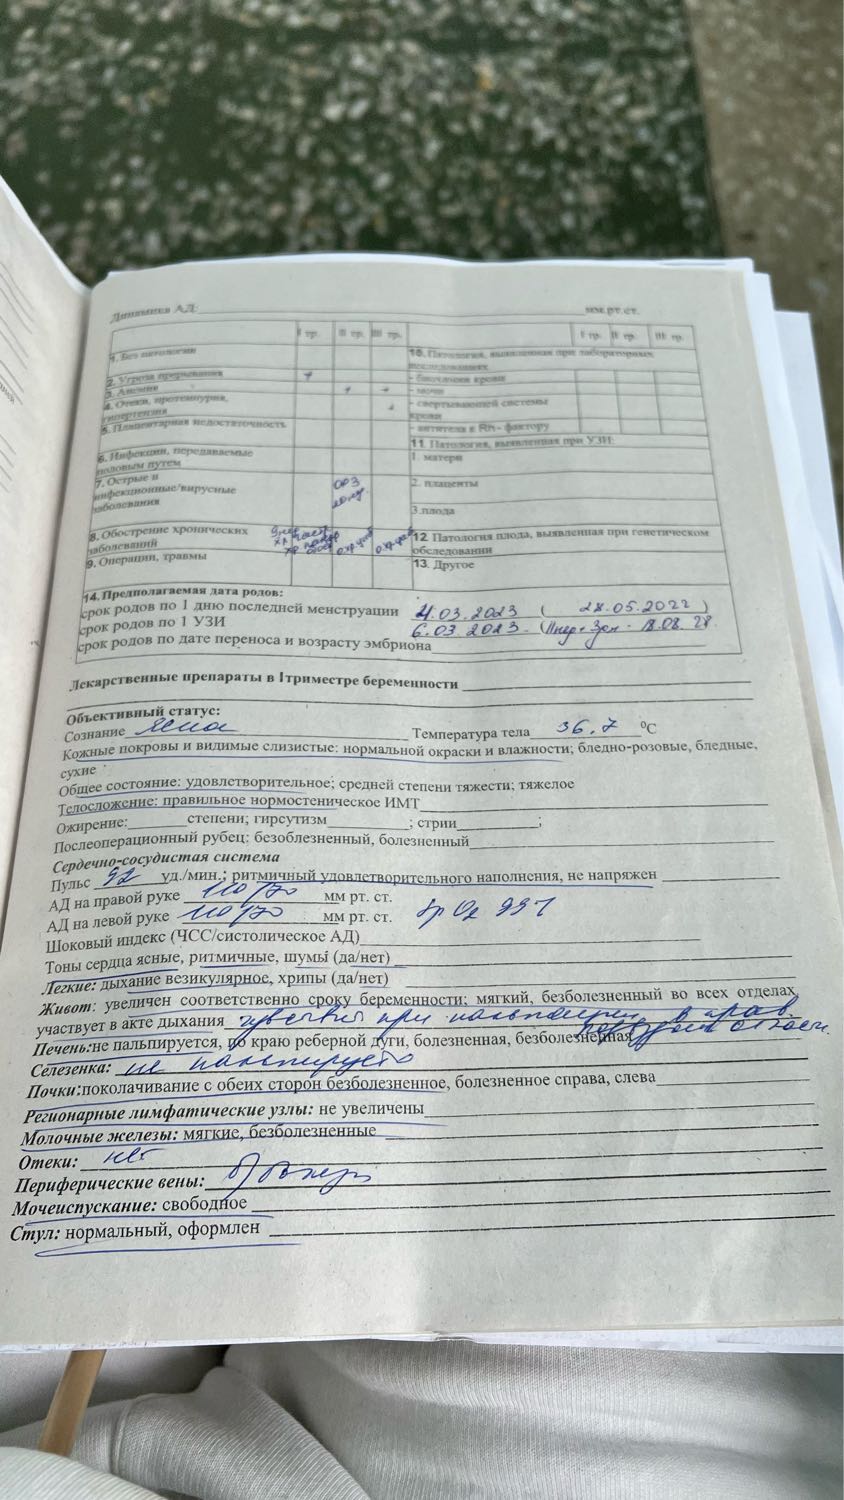 Динамика АД: мм.рт.ст.
I тр. II тр. III тр. I тр. II тр. III тр.
1. Без патологии
10. Патология, выявленная при лабораторных исследованиях
2. Угроза прерывания +
- биохимия крови
3. Анемия + +
- мочи
4. Отеки, протеинурия, гипертензия +
- свертывающей системы крови
5. Плацентарная недостаточность
- антитела к Rh - фактору
6. Инфекции, передаваемые половым путем
11. Патология, выявленная при УЗИ:
1. матери
7. Острые и инфекционные/вирусные заболевания ОРЗ
2. плаценты
3.плода
8. Обострение хронических заболеваний
12. Патология плода, выявленная при генетическом обследовании
9. Операции, травмы
13. Другое
14. Предполагаемая дата родов:
срок родов по 1 дню последней менструации 4.03.2023 ( 28.05.2022 )
срок родов по 1 УЗИ 6.03.2023
срок родов по дате переноса и возрасту эмбриона
Лекарственные препараты в I триместре беременности
Объективный статус:
Сознание ясное Температура тела 36,7 ⁰C
Кожные покровы и видимые слизистые: нормальной окраски и влажности; бледно-розовые, бледные,
сухие
Общее состояние: удовлетворительное; средней степени тяжести; тяжелое
Телосложение: правильное нормостеническое ИМТ
Ожирение: степени; гирсутизм ; стрии ;
Послеоперационный рубец: безоблезненный, болезненный
Сердечно-сосудистая система
Пульс 92 уд./мин.; ритмичный удовлетворительного наполнения, не напряжен
АД на правой руке 110/70 мм рт. ст.
АД на левой руке 110/70 мм рт. ст. Sp O2 99%
Шоковый индекс (ЧСС/систолическое АД)
Тоны сердца ясные, ритмичные, шумы (да/нет)
Легкие: дыхание везикулярное, хрипы (да/нет)
Живот: увеличен соответственно сроку беременности; мягкий, безболезненный во всех отделах
участвует в акте дыхания при пальпации в прав.
Печень:не пальпируется, по краю реберной дуги, болезненная, безболезненная области
Селезенка: не пальпируется
Почки:поколачивание с обеих сторон безболезненное, болезненное справа, слева
Регионарные лимфатические узлы: не увеличены
Молочные железы: мягкие, безболезненные
Отеки: нет
Периферические вены:
Мочеиспускание: свободное
Стул: нормальный, оформлен